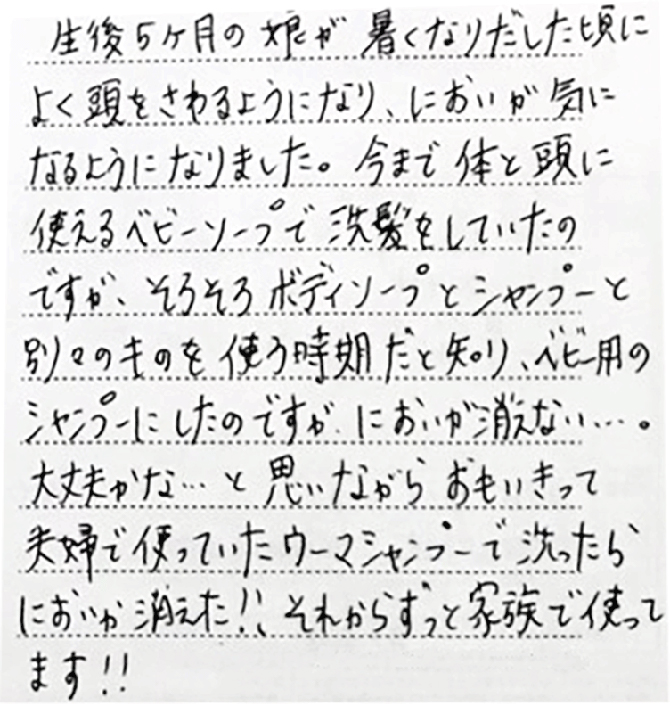 生後5ヶ月の娘が暑くなりだした頃に
よく頭をさわるようになり、においが気に
なるようになりました。今まで体と頭に
使えるベビーソープで洗髪をしていたの
ですが、そろそろボディソープとシャンプーと
別々のものを使う時期だと知り、ベビー用の
シャンプーにしたのですが、においが消えない…。
大丈夫かな…と思いながらおもいきって
夫婦で使っていたウーマシャンプーで洗ったら
においが消えた!!それからずっと家族で使って
ます!!